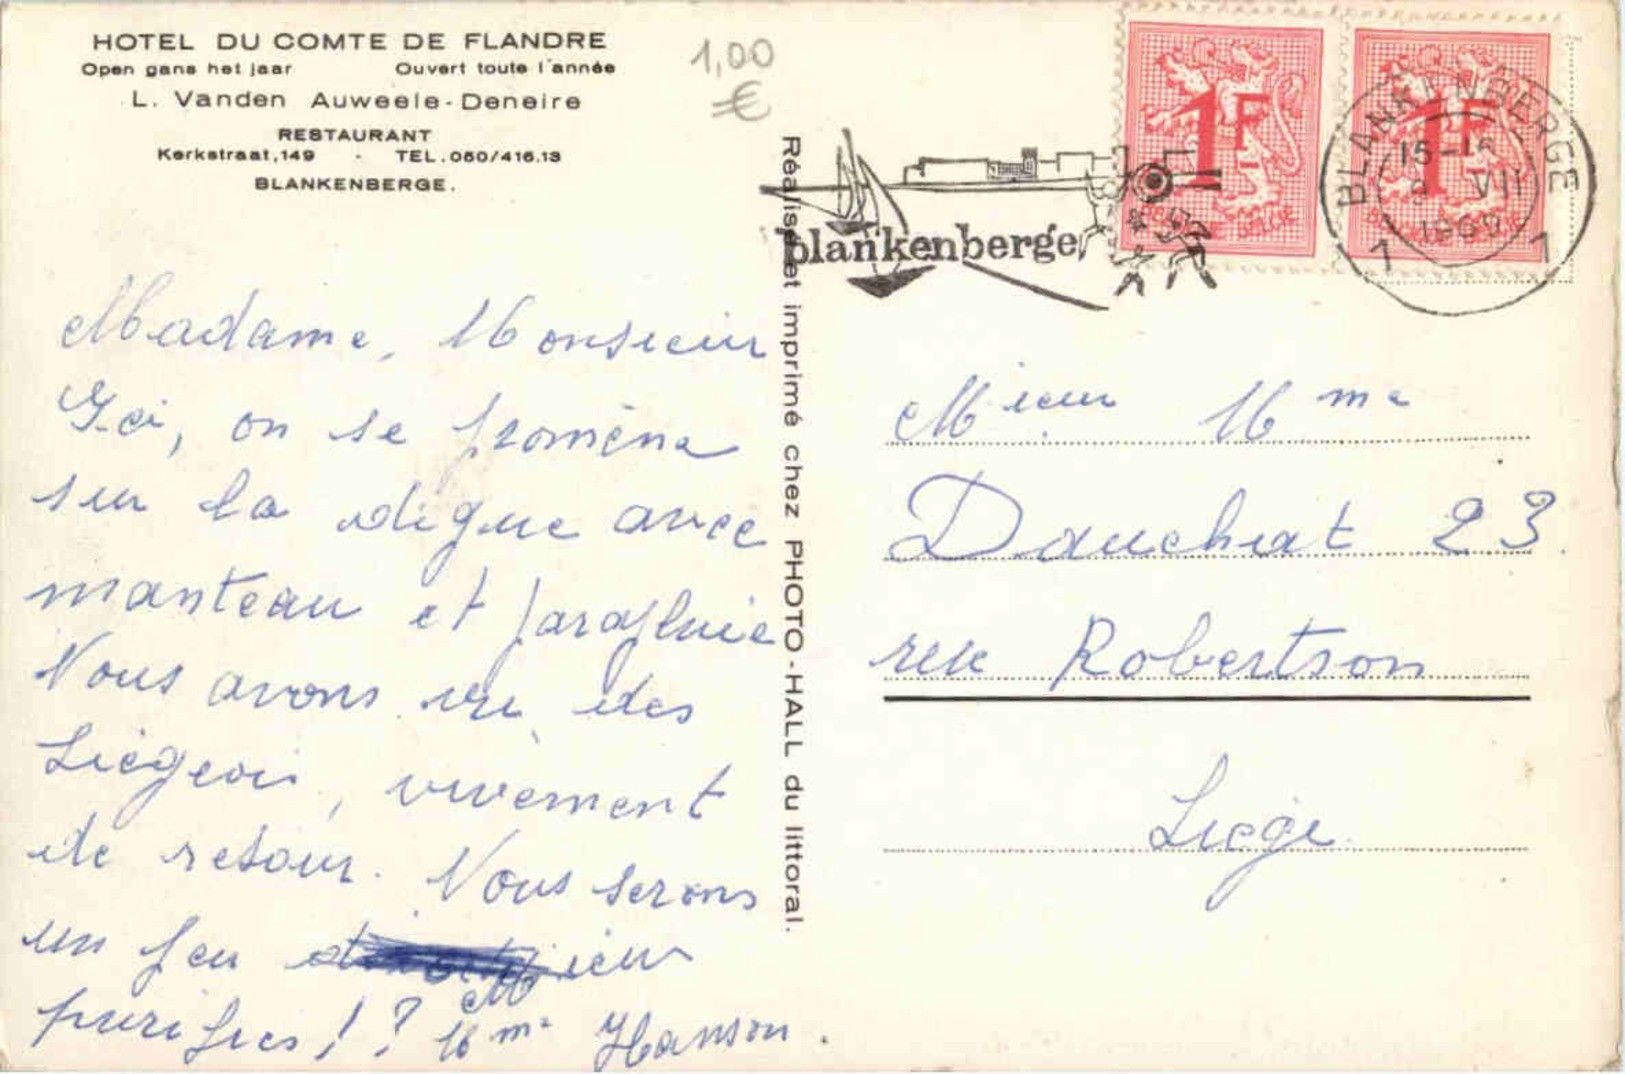 HOTEL DU COMTE DE FLANDRE
Open gans het jaar Ouvert toute l'année
L. Vanden Auweele-Deneire
RESTAURANT
Kerkstraat,149 - TEL.050/416.13
BLANKENBERGE.
1,00
€
1F
1F
BLANKENBERGE
15-
VII
1 1
blankenberge
Réalisé et imprimé chez PHOTO-HALL du littoral.
Madame, Monsieur
Ici, on se promène
sur la digue avec
manteau et parapluie
Nous avons vu des
Liégeois, vivement
de retour. Nous serons
un peu
purifiés!? Mme Hanson.
Mieur Mme
Dauchat 23
rue Robertson
Liège.